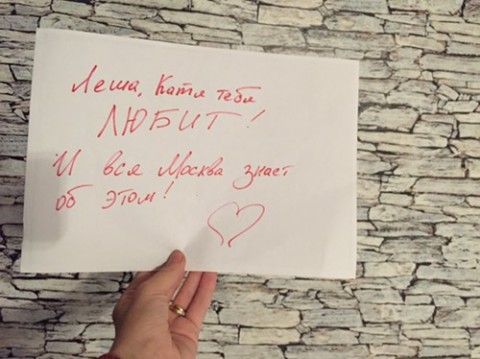 Леша, Катя тебя
ЛЮБИТ!
И вся Москва знает
об этом!